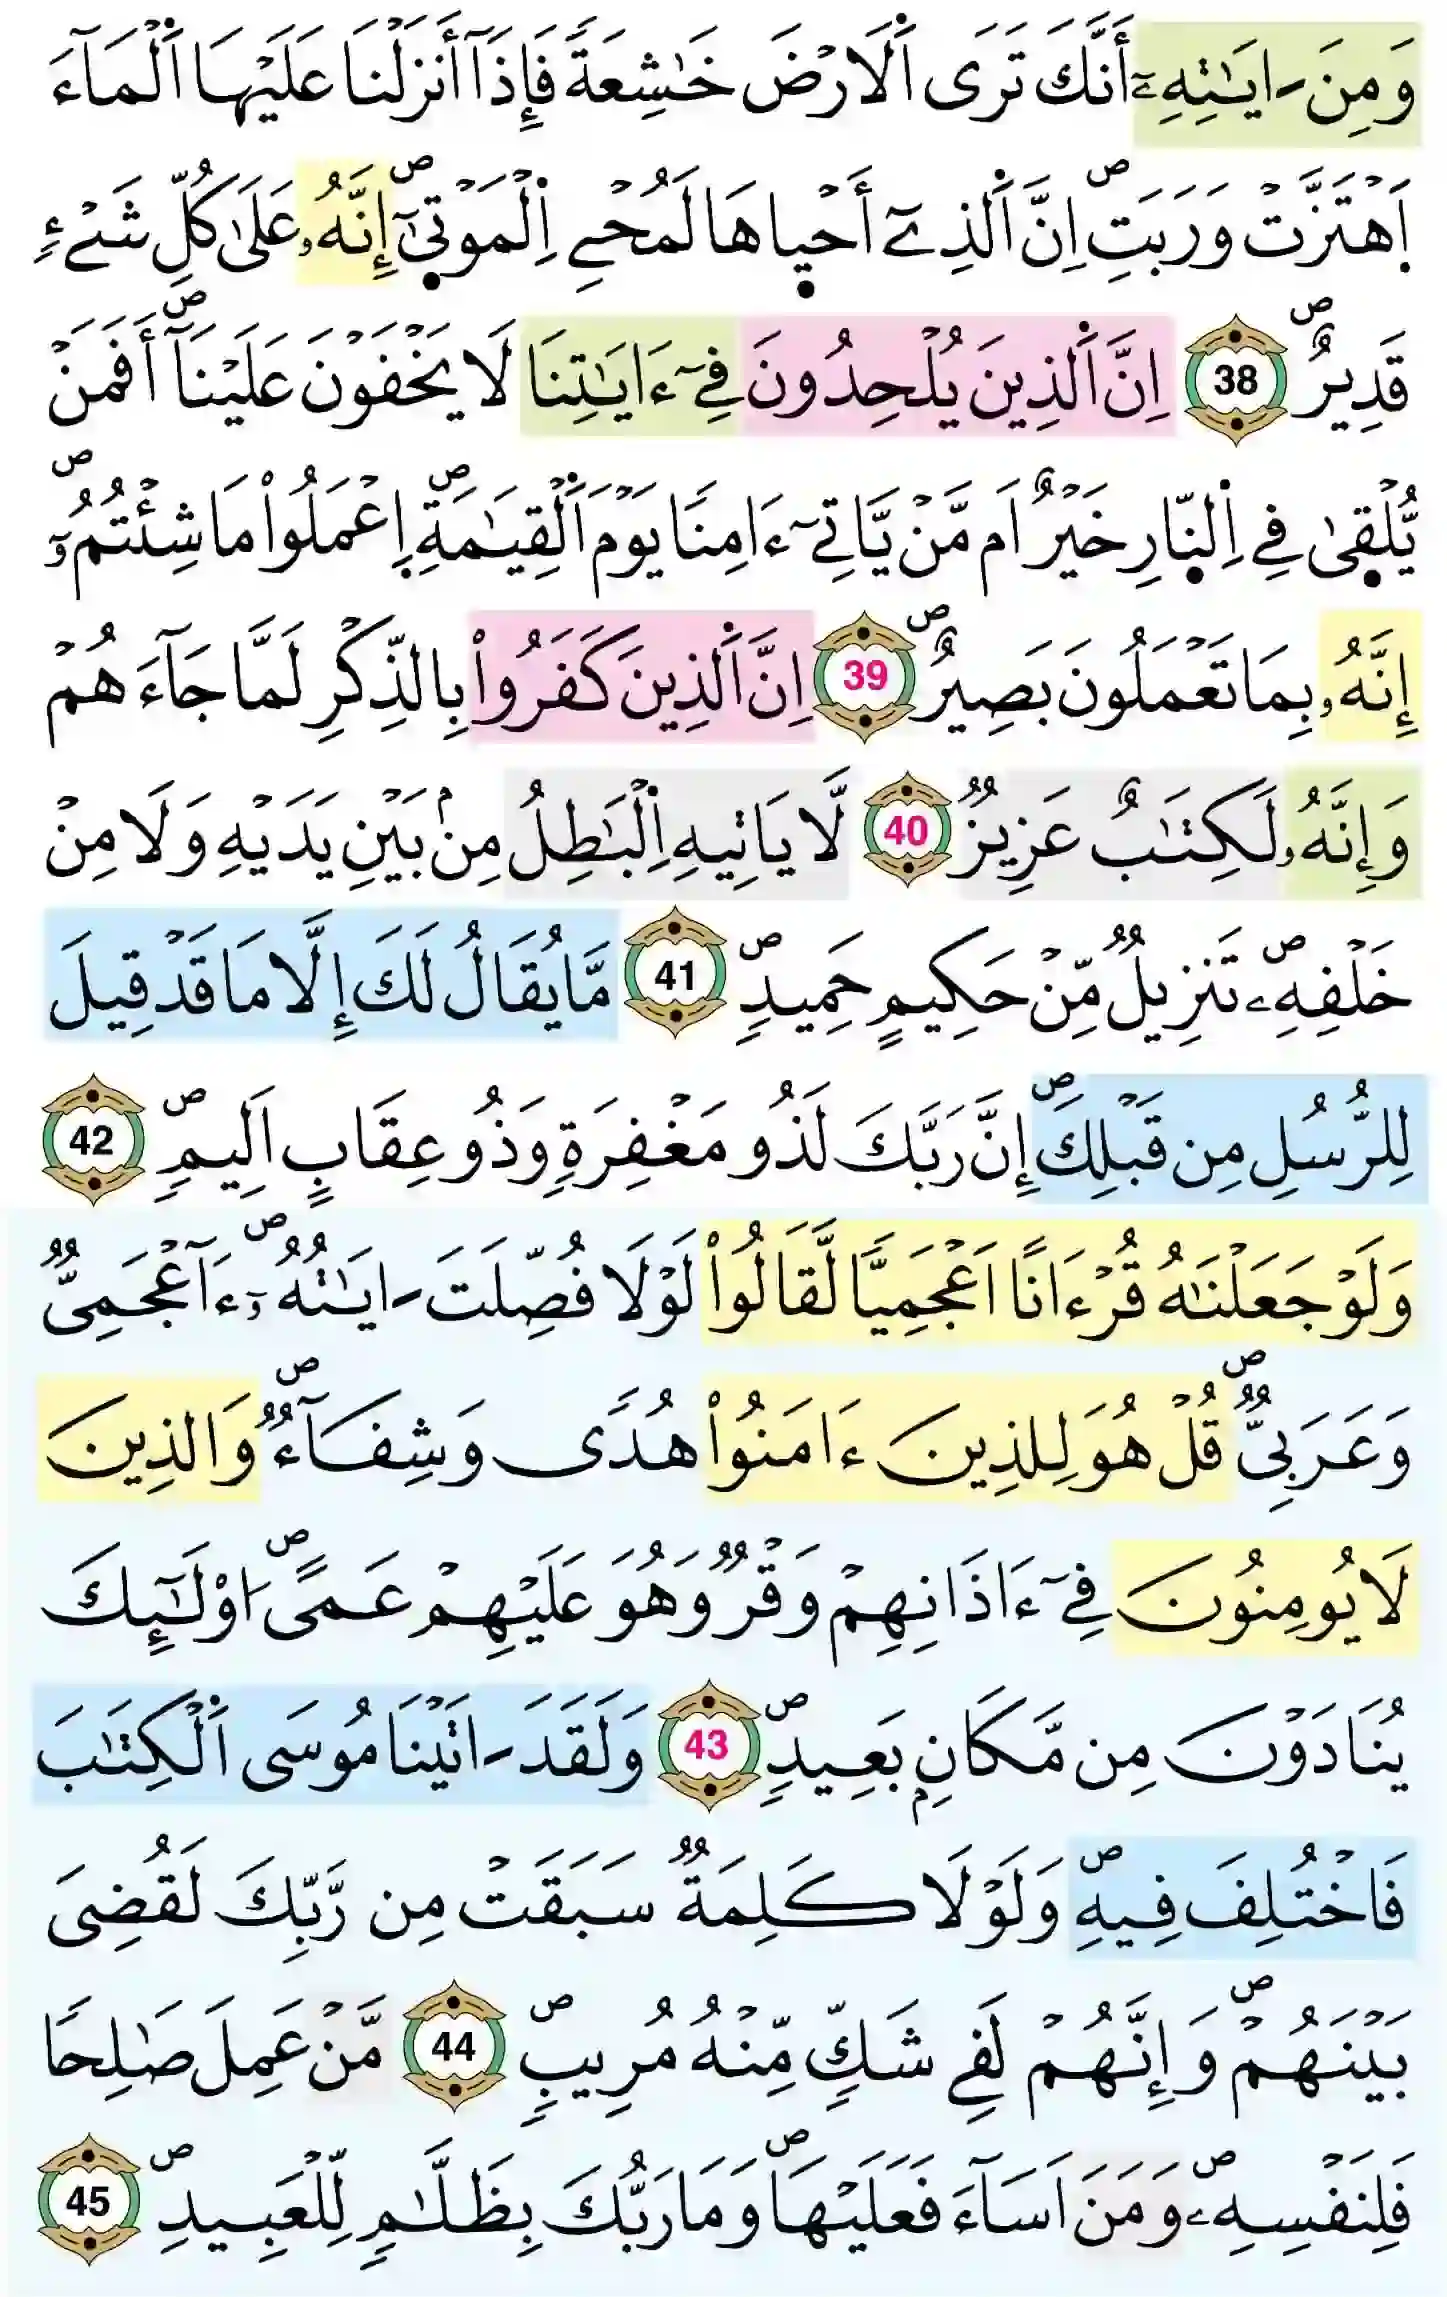 وَمِنَ اَيَٰتِهِۦٓ أَنَّكَ تَرَى اَ۬لَارْضَ خَٰشِعَةٗ فَإِذَآ أَنزَلْنَا عَلَيْهَا اَ۬لْمَآءَ
اَ۪هْتَزَّتْ وَرَبَتِۖ اِنَّ اَ۬لذِےٓ أَحْي۪اهَا لَمُحْيِ اِ۬لْمَوْت۪ىٰٓۖ إِنَّهُۥ عَلَىٰ كُلِّ شَےْءٖ
قَدِيرٌۖ 38 اِنَّ اَ۬لذِينَ يُلْحِدُونَ فِےٓ ءَايَٰتِنَا لَا يَخْفَوْنَ عَلَيْنَآۖ أَفَمَنْ
يُّلْق۪ىٰ فِے اِ۬لنّ۪ارِ خَيْرٌ اَم مَّنْ يَّاتِےٓ ءَامِنَا يَوْمَ اَ۬لْقِيَٰمَةِۖ اِ۪عْمَلُواْ مَا شِئْتُمُۥٓۖ
إِنَّهُۥ بِمَا تَعْمَلُونَ بَصِيرٌۖ 39 اِنَّ اَ۬لذِينَ كَفَرُواْ بِالذِّكْرِ لَمَّا جَآءَهُمْ
وَإِنَّهُۥ لَكِتَٰبٌ عَزِيزٞ 40 لَّا يَاتِيهِ اِ۬لْبَٰطِلُ مِنۢ بَيْنِ يَدَيْهِ وَلَا مِنْ
خَلْفِهِۦۖ تَنزِيلٞ مِّنْ حَكِيمٍ حَمِيدٖۖ 41 مَّا يُقَالُ لَكَ إِلَّا مَا قَدْ قِيلَ
لِلرُّسُلِ مِن قَبْلِكَۖ إِنَّ رَبَّكَ لَذُو مَغْفِرَةٖ وَذُو عِقَابٍ اَلِيمٖۖ 42
وَلَوْ جَعَلْنَٰهُ قُرْءَاناً اَعْجَمِيّاٗ لَّقَالُواْ لَوْلَا فُصِّلَتَ اَيَٰتُهُۥٓۖ ءَآعْجَمِيّٞ
وَعَرَبِيّٞۖ قُلْ هُوَ لِلذِينَ ءَامَنُواْ هُدٗى وَشِفَآءٞۖ وَالذِينَ
لَا يُومِنُونَ فِےٓ ءَاذَانِهِمْ وَقْرٞ وَهُوَ عَلَيْهِمْ عَمًىۖ اُوْلَٰٓئِكَ
يُنَادَوْنَ مِن مَّكَانِۢ بَعِيدٖۖ 43 وَلَقَدَ اٰتَيْنَا مُوسَى اَ۬لْكِتَٰبَ
فَاخْتُلِفَ فِيهِۖ وَلَوْلَا كَلِمَةٞ سَبَقَتْ مِن رَّبِّكَ لَقُضِيَ
بَيْنَهُمْۖ وَإِنَّهُمْ لَفِے شَكّٖ مِّنْهُ مُرِيبٖۖ 44 مَّنْ عَمِلَ صَٰلِحاٗ
فَلِنَفْسِهِۦۖ وَمَنَ اَسَآءَ فَعَلَيْهَاۖ وَمَا رَبُّكَ بِظَلَّٰمٖ لِّلْعَبِيدِۖ 45